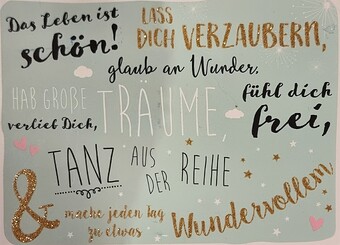 Das Leben ist
schön!
LASS
DICH VERZAUBERN,
glaub an Wunder.
HAB GROßE
TRÄUME,
fühl dich
frei,
verlieb Dich,
TANZ AUS
DER REIHE
& mache jeden Tag
zu etwas
Wundervollem